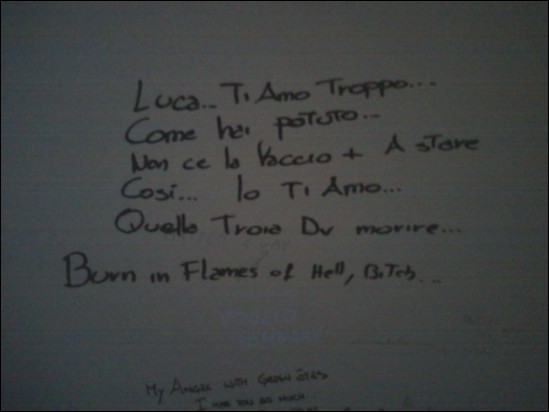 Luca... Ti Amo Troppo...
Come hai potuto...
Non ce la Faccio + A stare
Così... Io Ti Amo...
Quella Troia Dv morire...
Burn in Flames of Hell, Bitch...
My Angel with Green eyes
I you so much